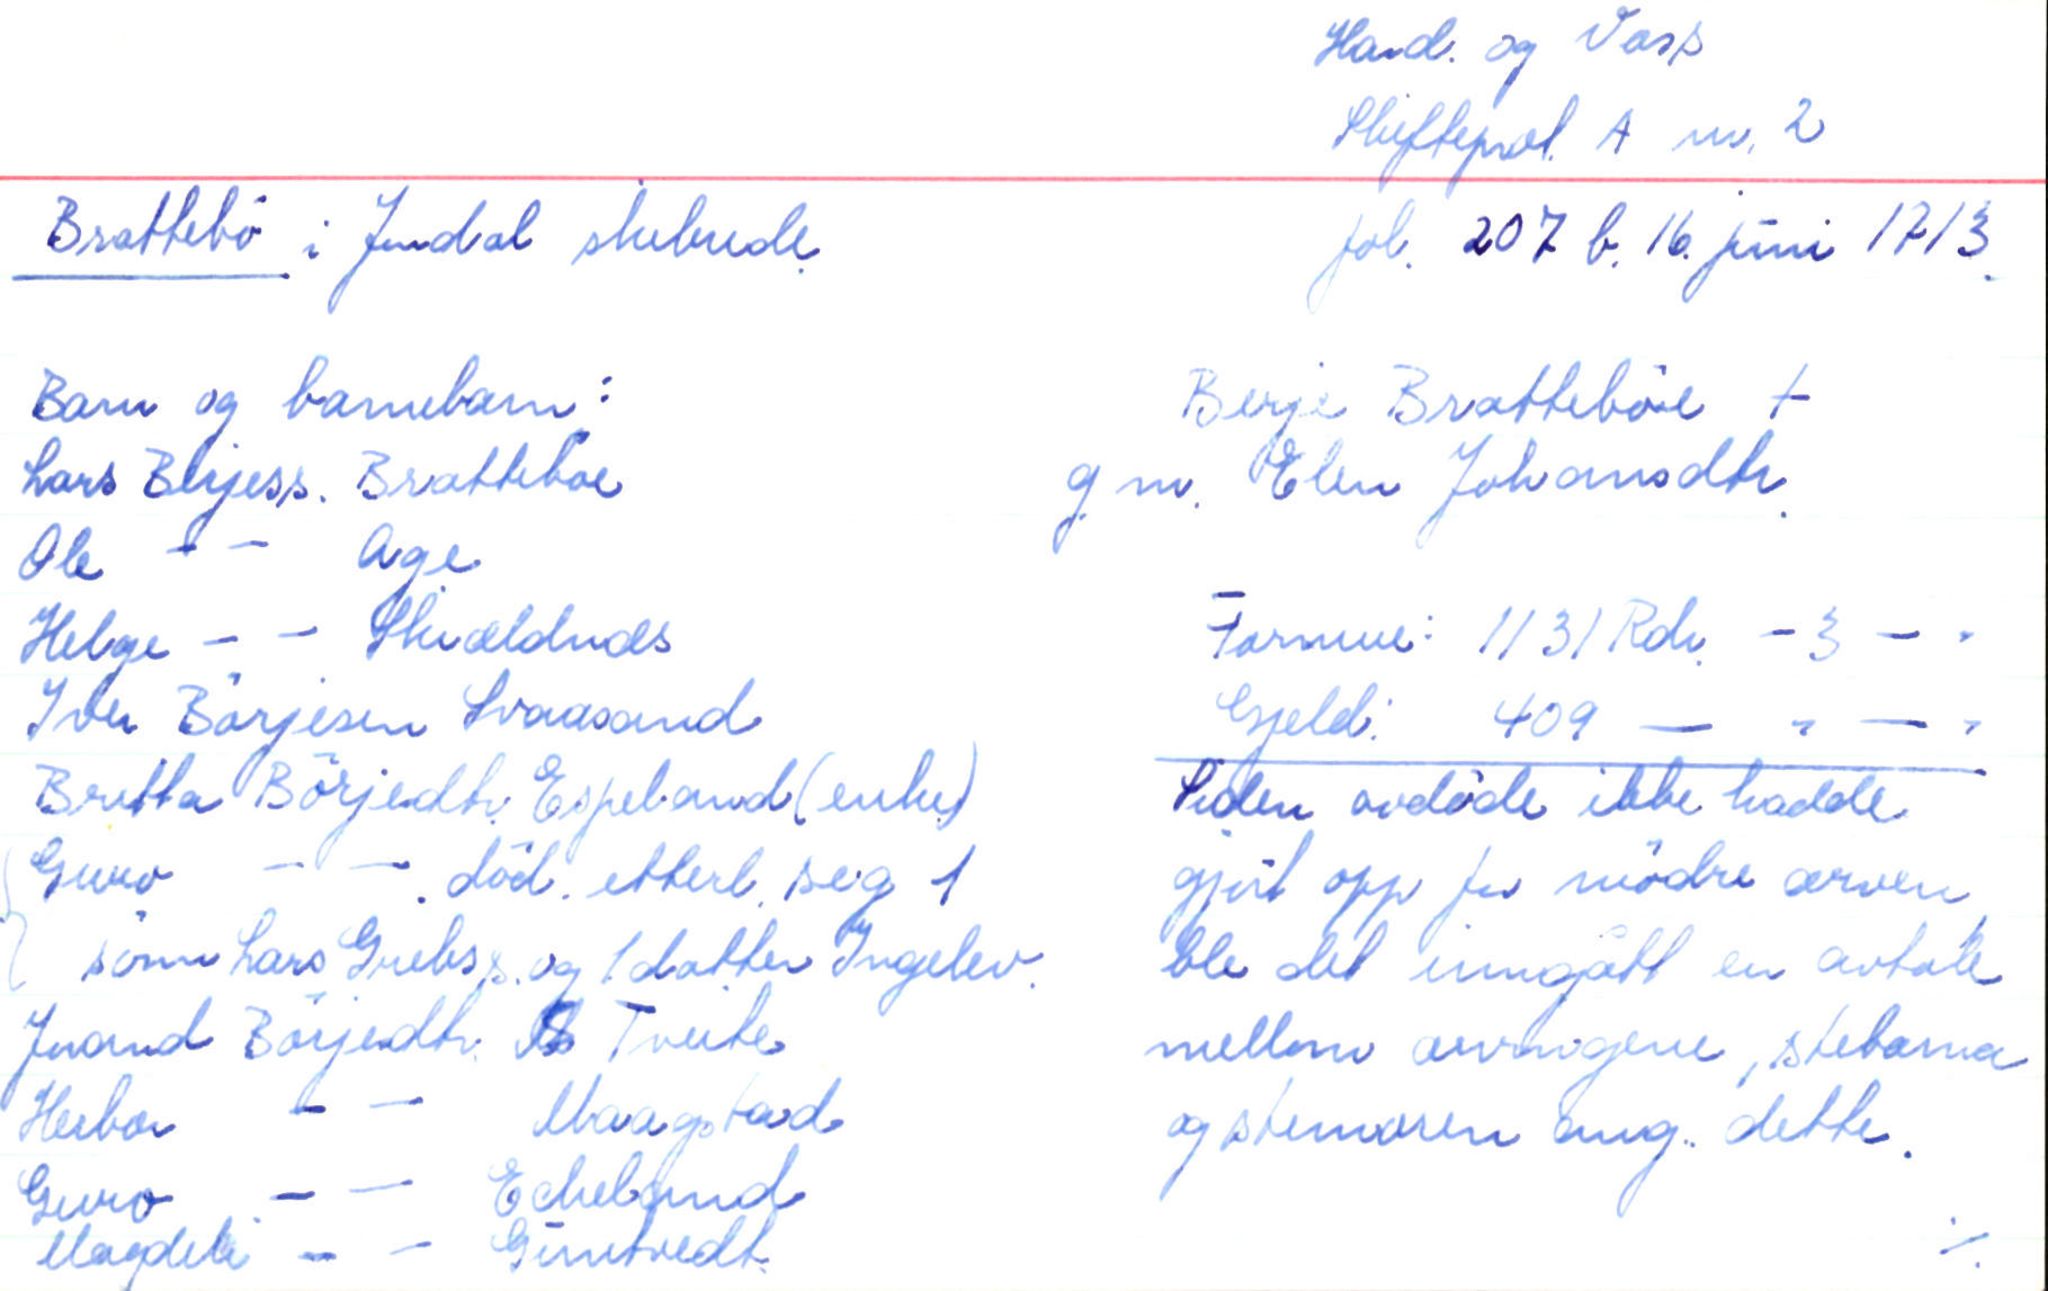 Hard. og Voss
Skifteprot. A nr. 2
Brattebö i Jondal skibrede
fol. 207 b. 16. juni 1713.
Barn og barnebarn:
Lars Berjess. Bratteboe
Ole - - Age
Helge - - Skiældnæs
Iver Börjesen Svaasand
Britta Börjedtr. Espeland (enke)
Guro - - . död. etterl. seg 1
sönn Lars Grebss. og 1 datter Ingelev.
Jorand Börjedtr. Tveite
Herbor - - Maagstad
Guro - - Echeland
Magdeli - - Guntvedt.
Berje Bratteböe +
g m. Elen Johansdtr.
Formue: 1131 Rdr. - 3 - "
Gjeld: 409 — " — "
Siden avdöde ikke hadde
gjort opp for mödre arven,
ble det inngått en avtale
mellom arvingene, stebarna
og stemoren ang. dette.
./.